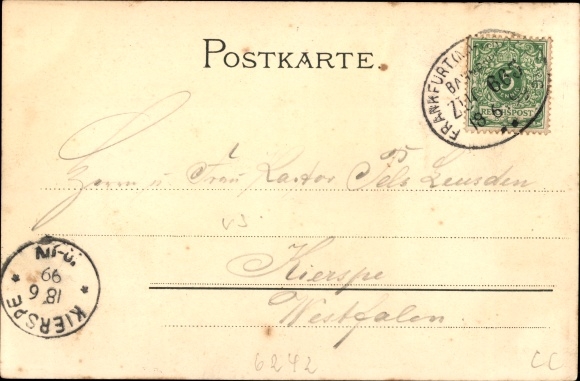 POSTKARTE.
FRANKFURT (M.)
ZUG 665
18 6
REICHSPOST
5
Herrn u. Frau Pastor Fels Leusden
Kierspe
Westfalen.
KIERSPE
18 6
99
6242
CC